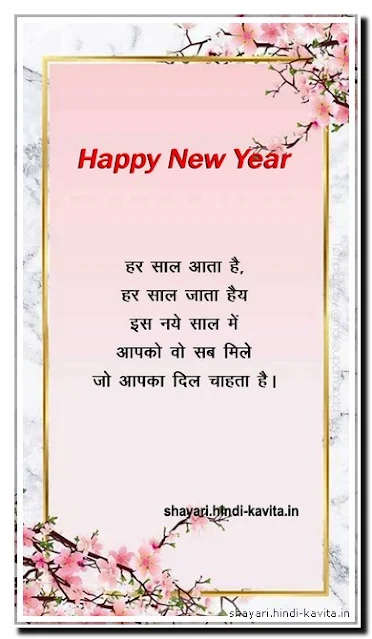 Happy New Year
हर साल आता है,
हर साल जाता हैय
इस नये साल में
आपको वो सब मिले
जो आपका दिल चाहता है।
shayari.hindi-kavita.in
shayari.hindi-kavita.in